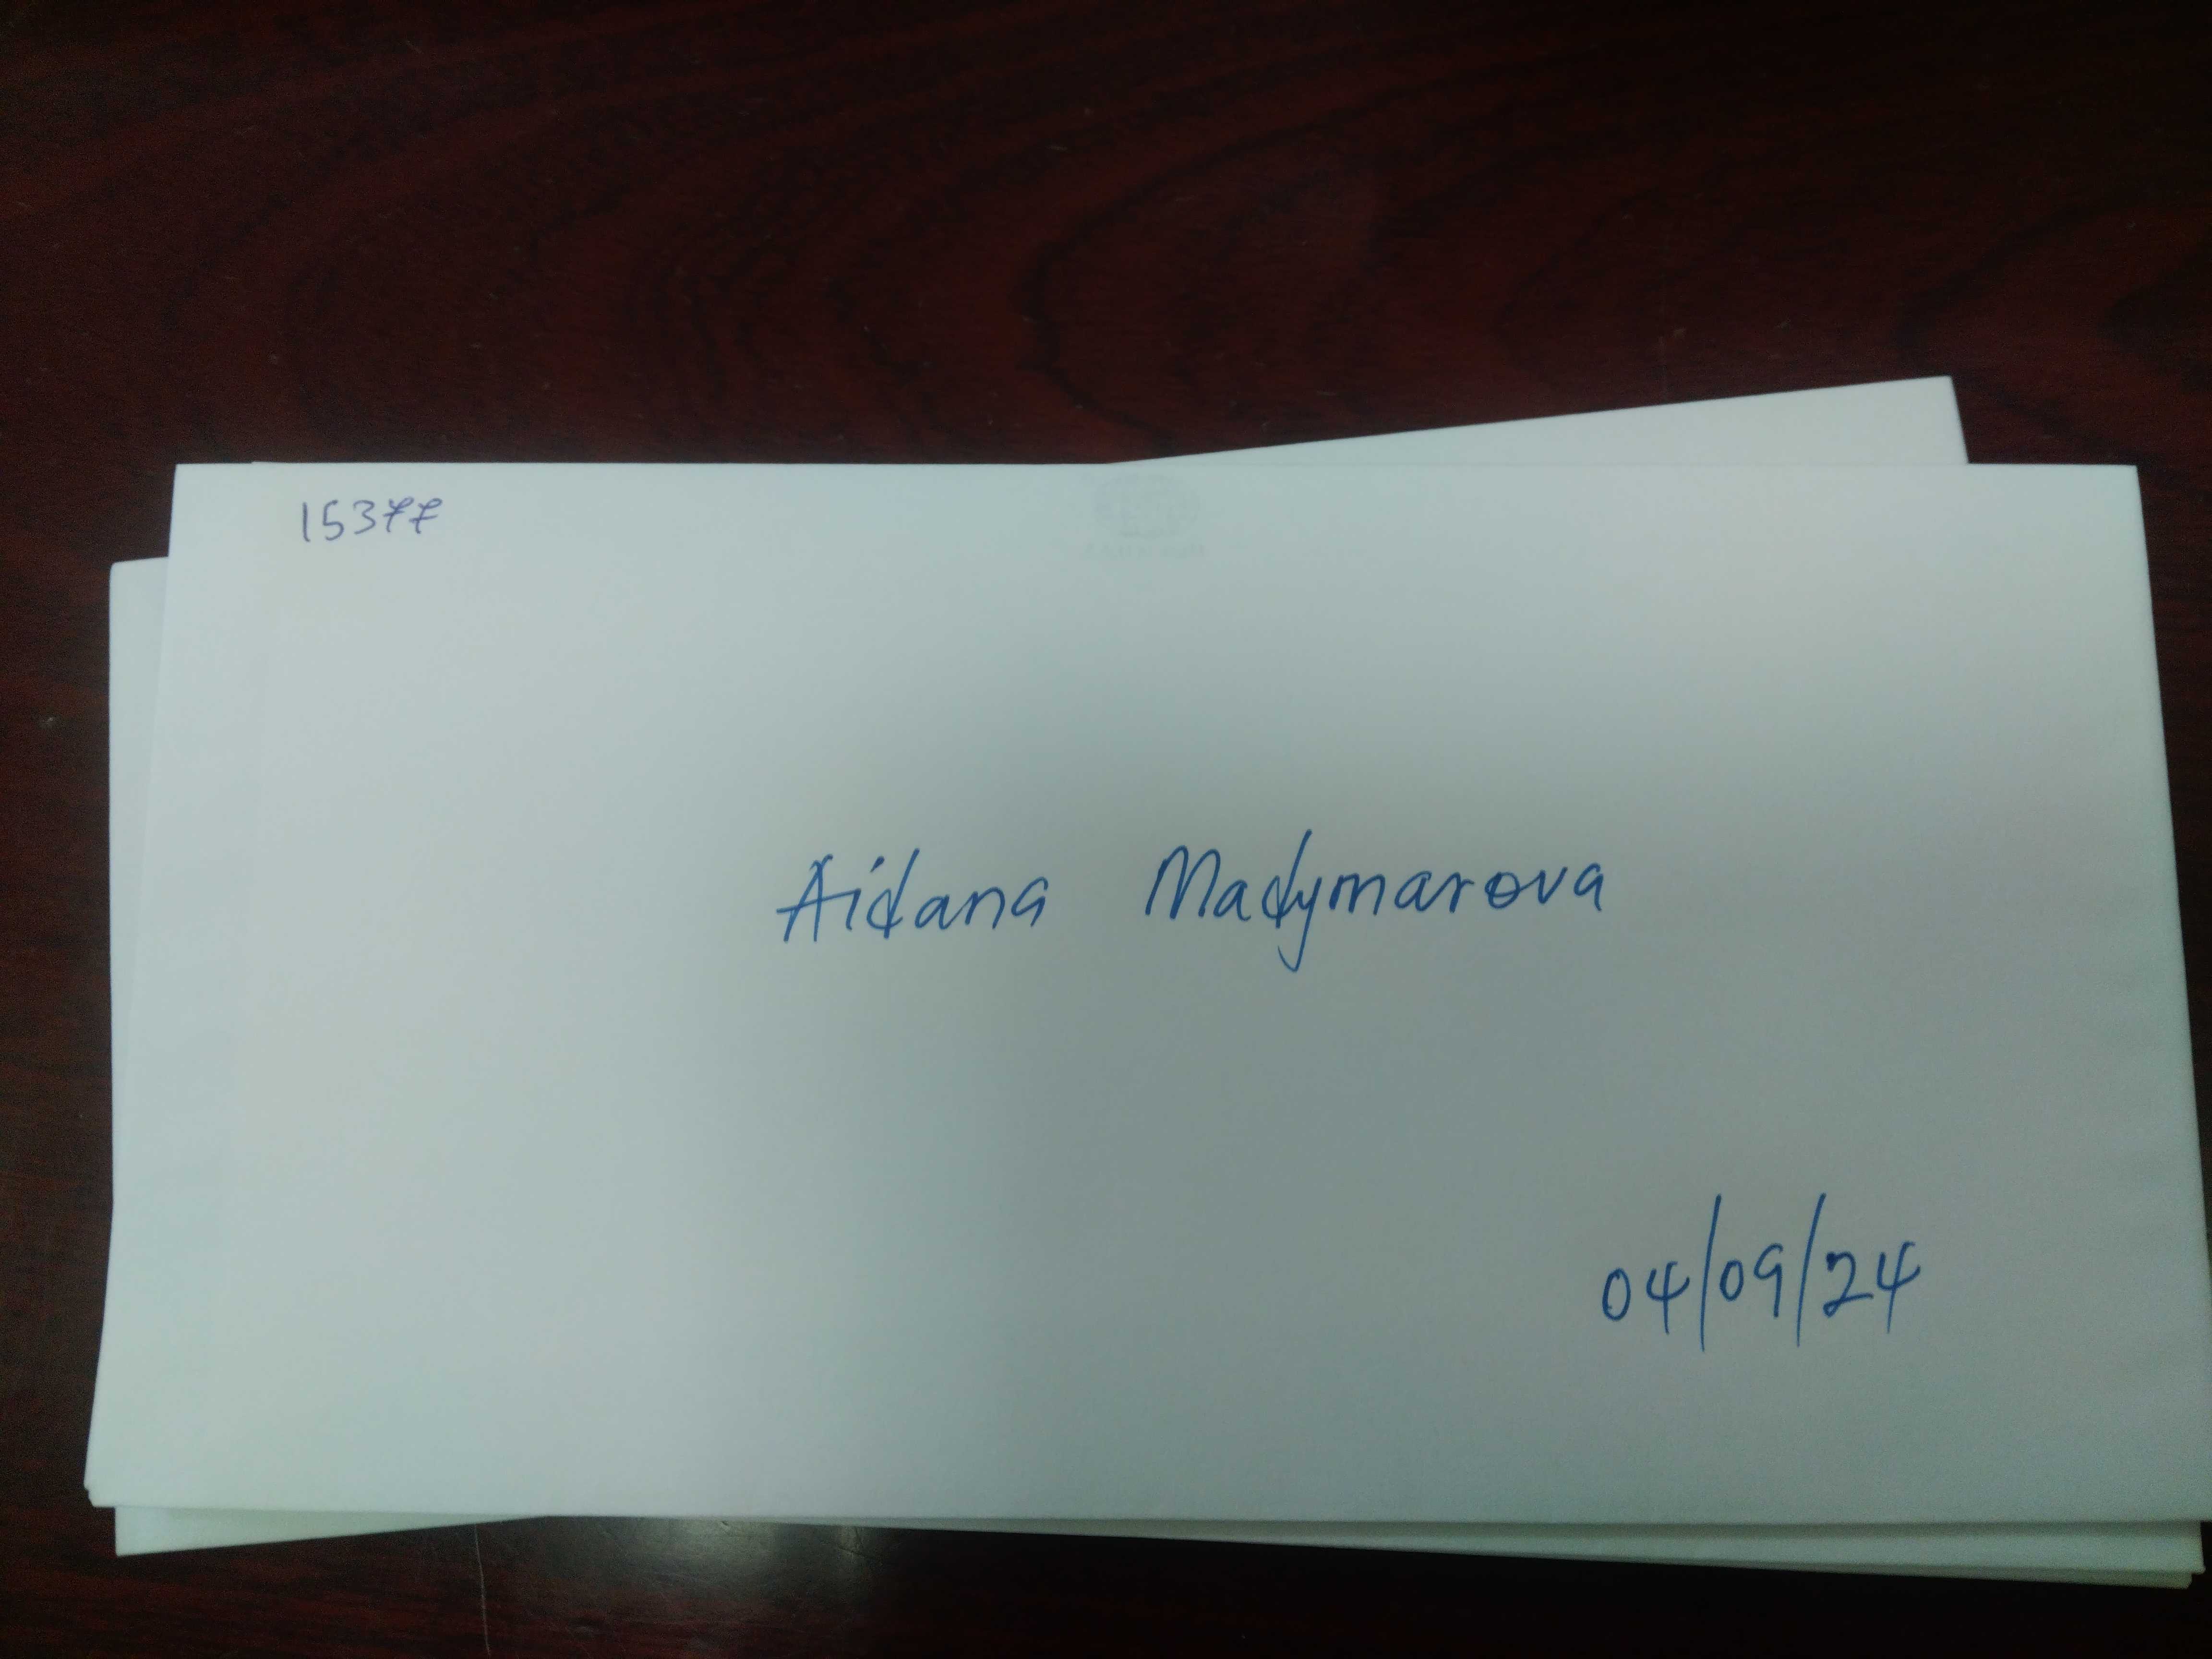 15377
Aidana Madymarova
04/09/24